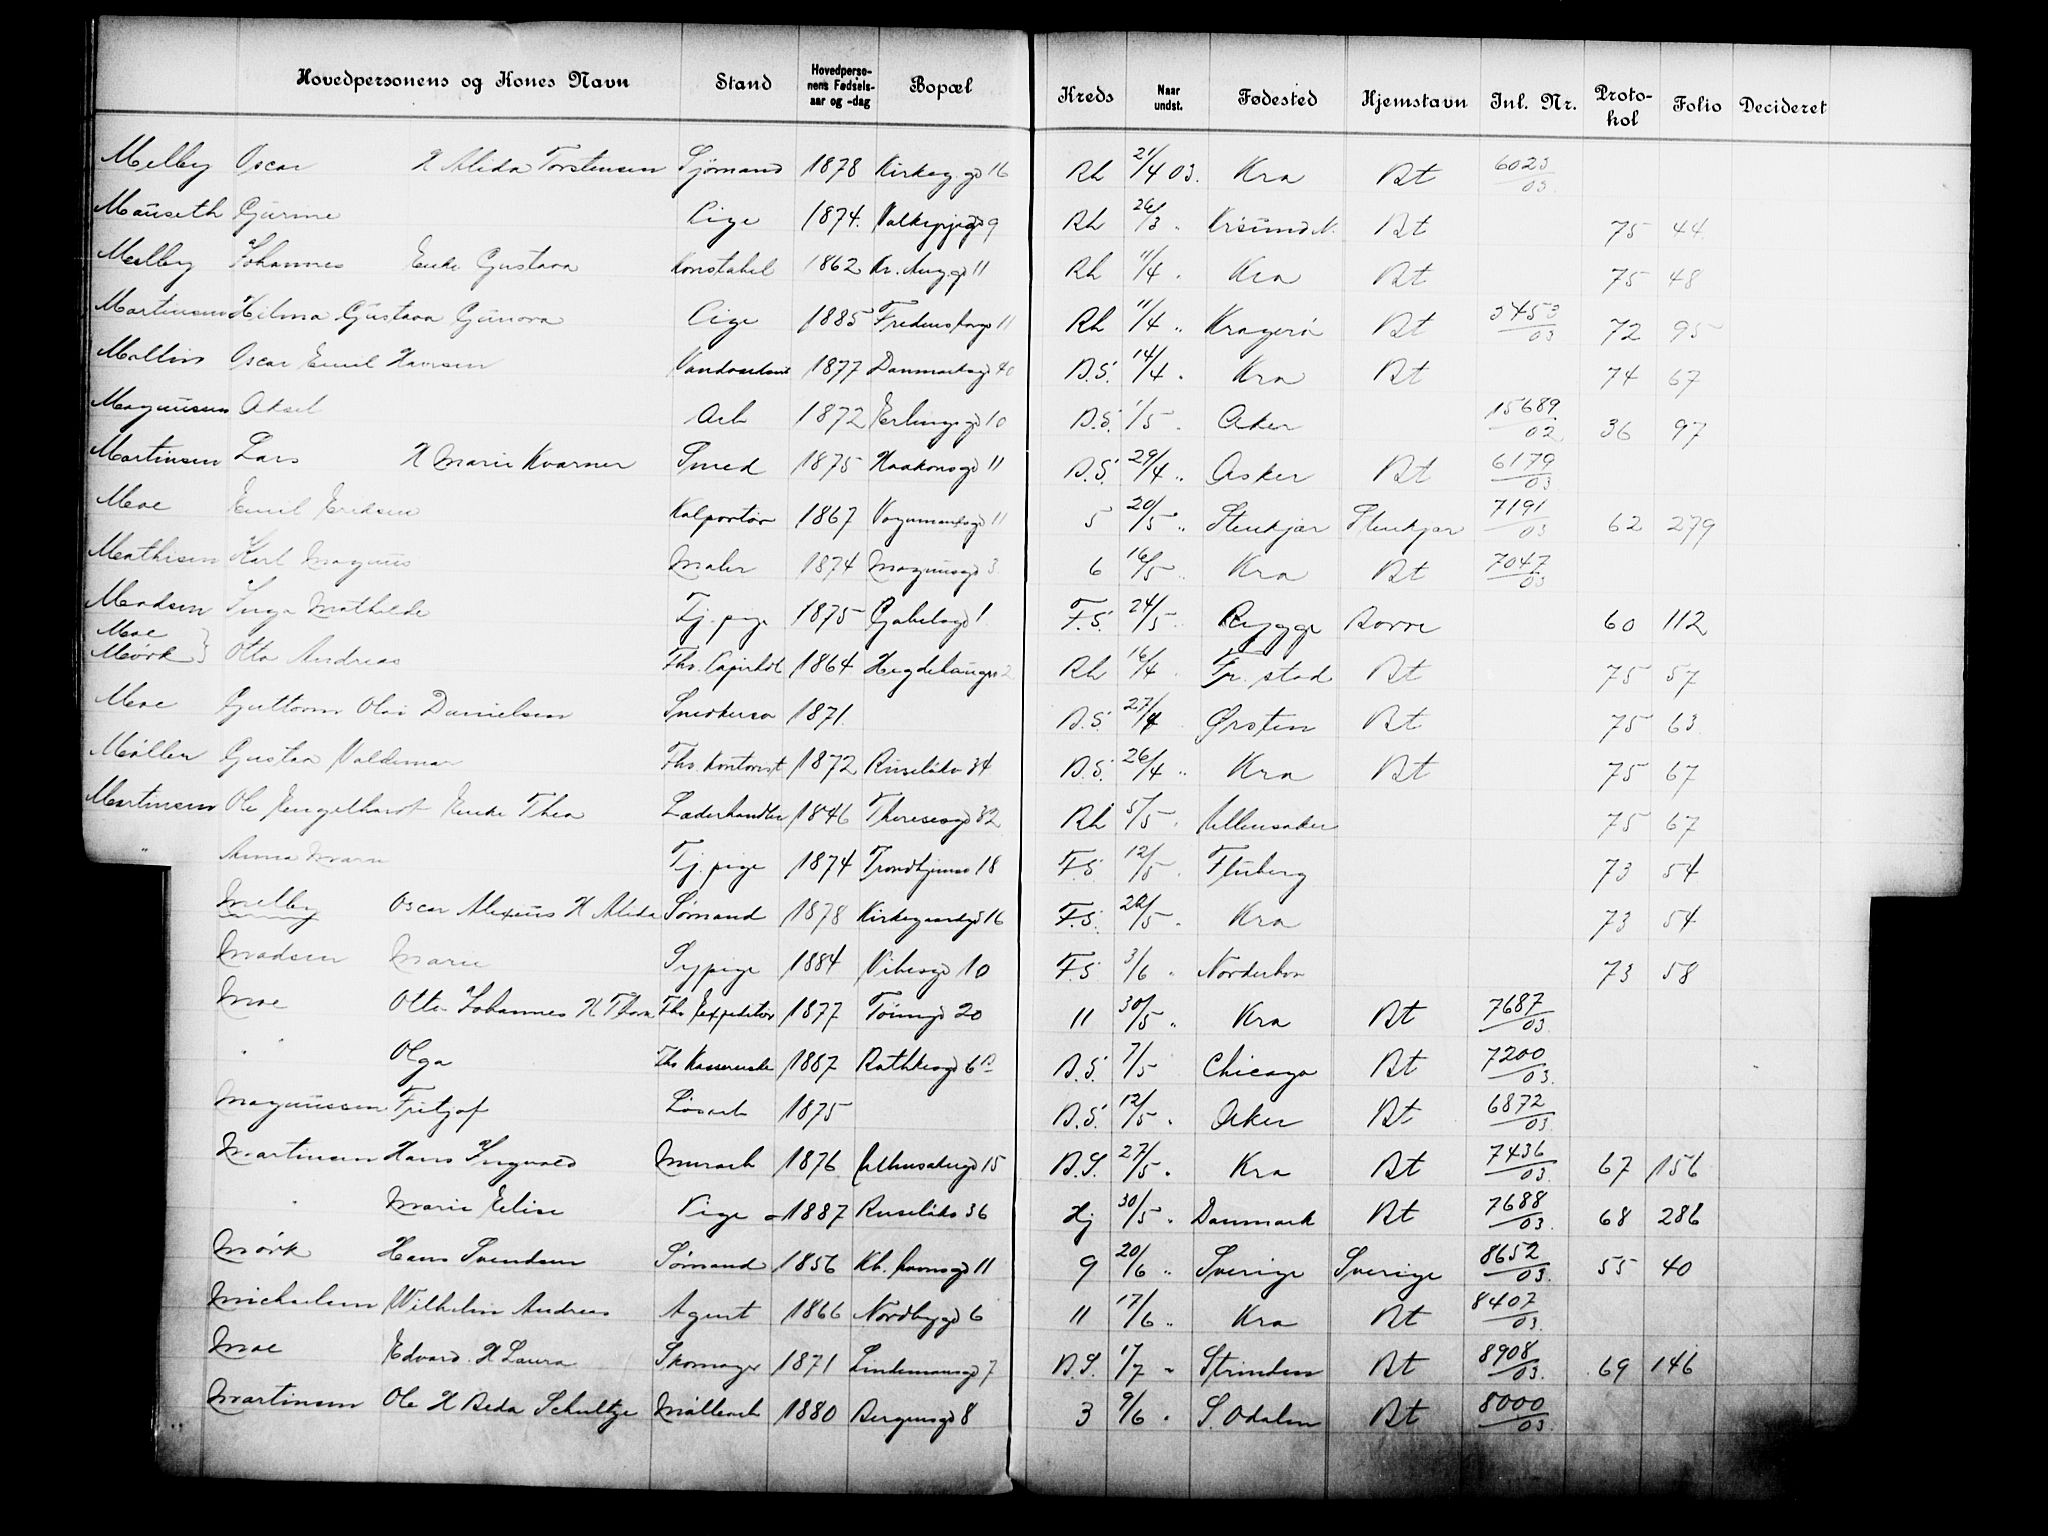 Hovedpersonens og Kones Navn Stand Hovedpersonens Fødselsaar og -dag Bopæl Kreds Naar undst. Fødested Hjemstavn Inl. Nr. Protokol Folio Decideret
Melby Oscar H Alida Torstensen Sjømand 1878 Kirkeg.gd 16 Rh 21/4 03. Kra Bt 6023/03
Mauseth Gurine Pige 1874. Valkyrjegd 9 Rh 26/3 " Krsund N. Bt 75 44
Melby Johannes Enke Gustava Konstabel 1862 Kr. Aug. gd 11 Rh 11/4 " Kra Bt 75 48
Martinsen Hilma Gustava Gunora Pige 1885 Fredensborgv 11 Rh 11/4 " Kragerö Bt 3453/03 72 95
Mallin Oscar Emil Hansen 1877 Danmarksgd 40 B.S. 14/4 " Kra Bt 74 67
Magnussen Aksel Arb 1872 Erlingsgd 10 B.S. 1/5 " Aker 15689/02 36 97
Martinsen Lars H Marie Kvarner Smed 1875 Haakonsgd 11 B.S. 29/4 " Asker Bt 6179/03
Moe Emil Eriksen Kolportör 1867 11 5 20/5 " Stenkjær Stenkjær 7191/03 62 279
Mathisen Karl Magnus Maler 1874 Magnusgd 3 6 16/5 " Kra Bt 7047/03
Madsen Inga Mathilde Tj. pige 1875 Gabelsgd 1 F.S. 24/5 " Rygge Borre 60 112
Moe
Mørk } Otto Andreas Fhv. 1864 Hegdehaugsv 2 Rh 16/4 " Fr. stad Bt 75 57
Moe Guttorm Olai Danielsen Snedkersv 1871. B.S. 27/4 " Ørsten Bt 75 63
Møller Gustav Valdemar Fhv. Kontorist 1872 Ruselökv 34 B.S. 26/4 " Kra Bt 75 67
Martinsen Ole Engelhardt Enke Thea Læderhandler 1846 Theresesgd 32 Rh 5/5 " Ullensaker 75 67
" Anna Marie Tj. pige 1874 Trondhjemsv 18 F.S. 12/5 " Fluberg 73 54
Melby Oscar Alexius H Alida Sømand 1878 Kirkegaardsgd 16 F.S. 20/5 " Kra 73 54
Madsen Marie Sypige 1884 Vibesgd 10 F.S. 3/6 " Norderhov 73 58
Moe Otto Johannes H Thora Fhv Expeditör 1877 Töiengd 20 11 30/5 " Kra Bt 7687/03
" " Olga Fhv Kassererske 1887 Rathkesgd 6B B.S. 7/5 Chicago Bt 7200/03
Magnussen Fritjof Løsarb 1875 B.S. 12/5 " Aker Bt 6872/03
Martinsen Hans Ingvald Murarb 1876 Ullensakergd 15 B.S. 27/5 " Kra Bt 7436/03 67 156
" Marie Elise Pige 1887 Ruselökv 36 Hj 30/5 " Danmark Bt 7688/03 68 286
Mørk Hans Svendsen Sømand 1856 11 9 20/6 " Sverige Sverige 8652/03 55 40
Michaelsen Wilhelm Andreas Agent 1866 Nordbygd 6 11 17/6 " Kra Bt 8407/03
Moe Edvard. H Laura Skomager 1871 Lindemansgd 7 B.S. 17/7 " Strinden Bt 8908/03 69 146
Martinsen Ole H Beda Schultze Møllearb 1880 Bergensgd 8 3 9/6 " S. Odalen Bt 8000/03